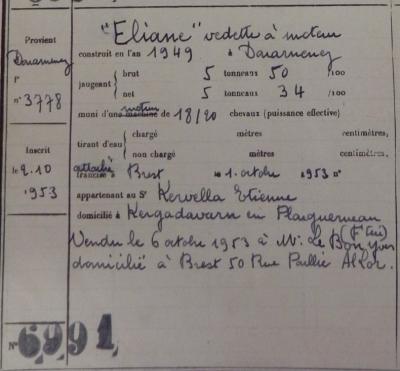 Provient
Douarnenez
F°
n° 3778
Inscrit
le 2.10
1953
"Eliane" vedette à moteur
construit en l'an 1949 à Douarnenez
jaugeant brut 5 tonneaux 50 /100
net 5 tonneaux 34 /100
muni d'une machine moteur de 18/20 chevaux (puissance effective)
tirant d'eau chargé mètres centimètres,
non chargé mètres centimètres,
francisé attaché à Brest le 1. octobre 1953 n°
appartenant au Sr Kervella Etienne
domicilié à en Plouguerneau
Vendu le 6 octobre 1953 à Mr. Le Bon Yves
domicilié à Brest 50 Rue
N° 6991